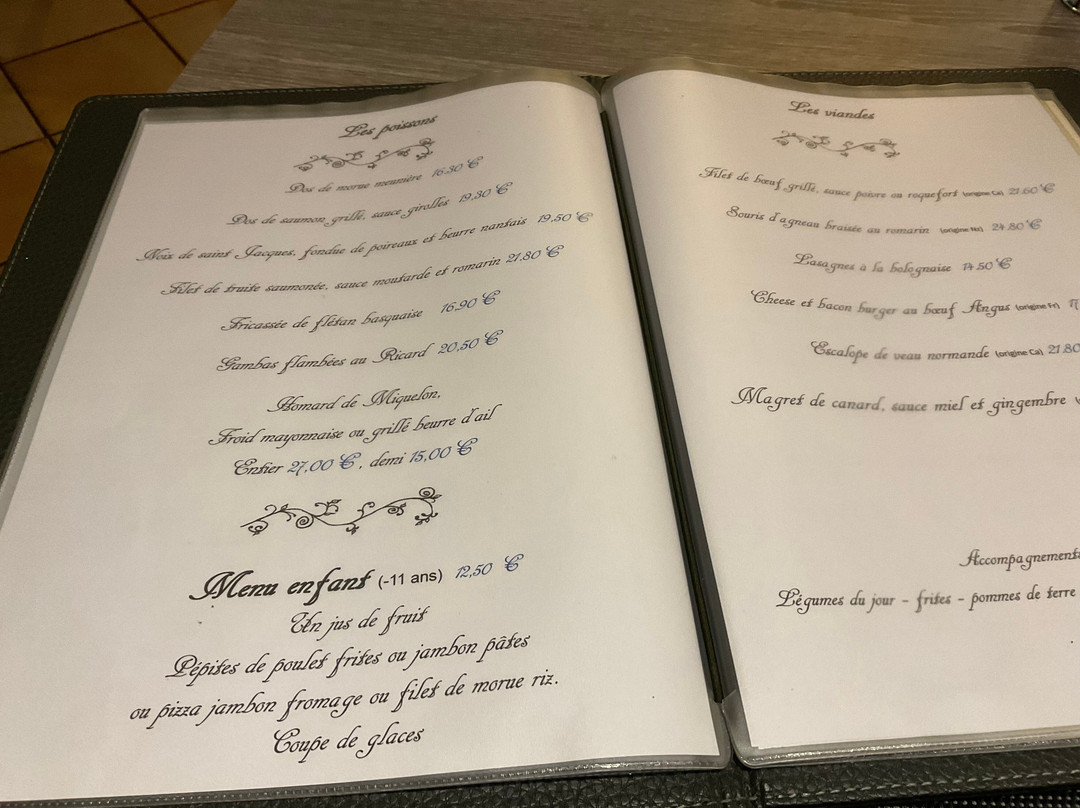 Les poissons
Dos de morue meunière 16,30 €
Dos de saumon grillé, sauce girolles 19,30 €
Noix de saint Jacques, fondue de poireaux et beurre nantais 19,50 €
Filet de truite saumonée, sauce moutarde et romarin 21,80 €
Fricassée de flétan basquaise 16,90 €
Gambas flambées au Ricard 20,50 €
Homard de Miquelon,
Froid mayonnaise ou grillé beurre d'ail
Entier 27,00 €, demi 15,00 €
Menu enfant (-11 ans) 12,50 €
Un jus de fruit
Pépites de poulet frites ou jambon pâtes
ou pizza jambon fromage ou filet de morue riz.
Coupe de glaces
Les viandes
Filet de bœuf grillé, sauce poivre ou roquefort (origine Ca) 21.60 €
Souris d'agneau braisée au romarin (origine Nz) 24.80 €
Lasagnes à la bolognaise 14.50 €
Cheese et bacon burger au bœuf Angus (origine Fr)
Escalope de veau normande (origine Ca) 21.80
Magret de canard, sauce miel et gingembre
Accompagnements
Légumes du jour - frites - pommes de terre